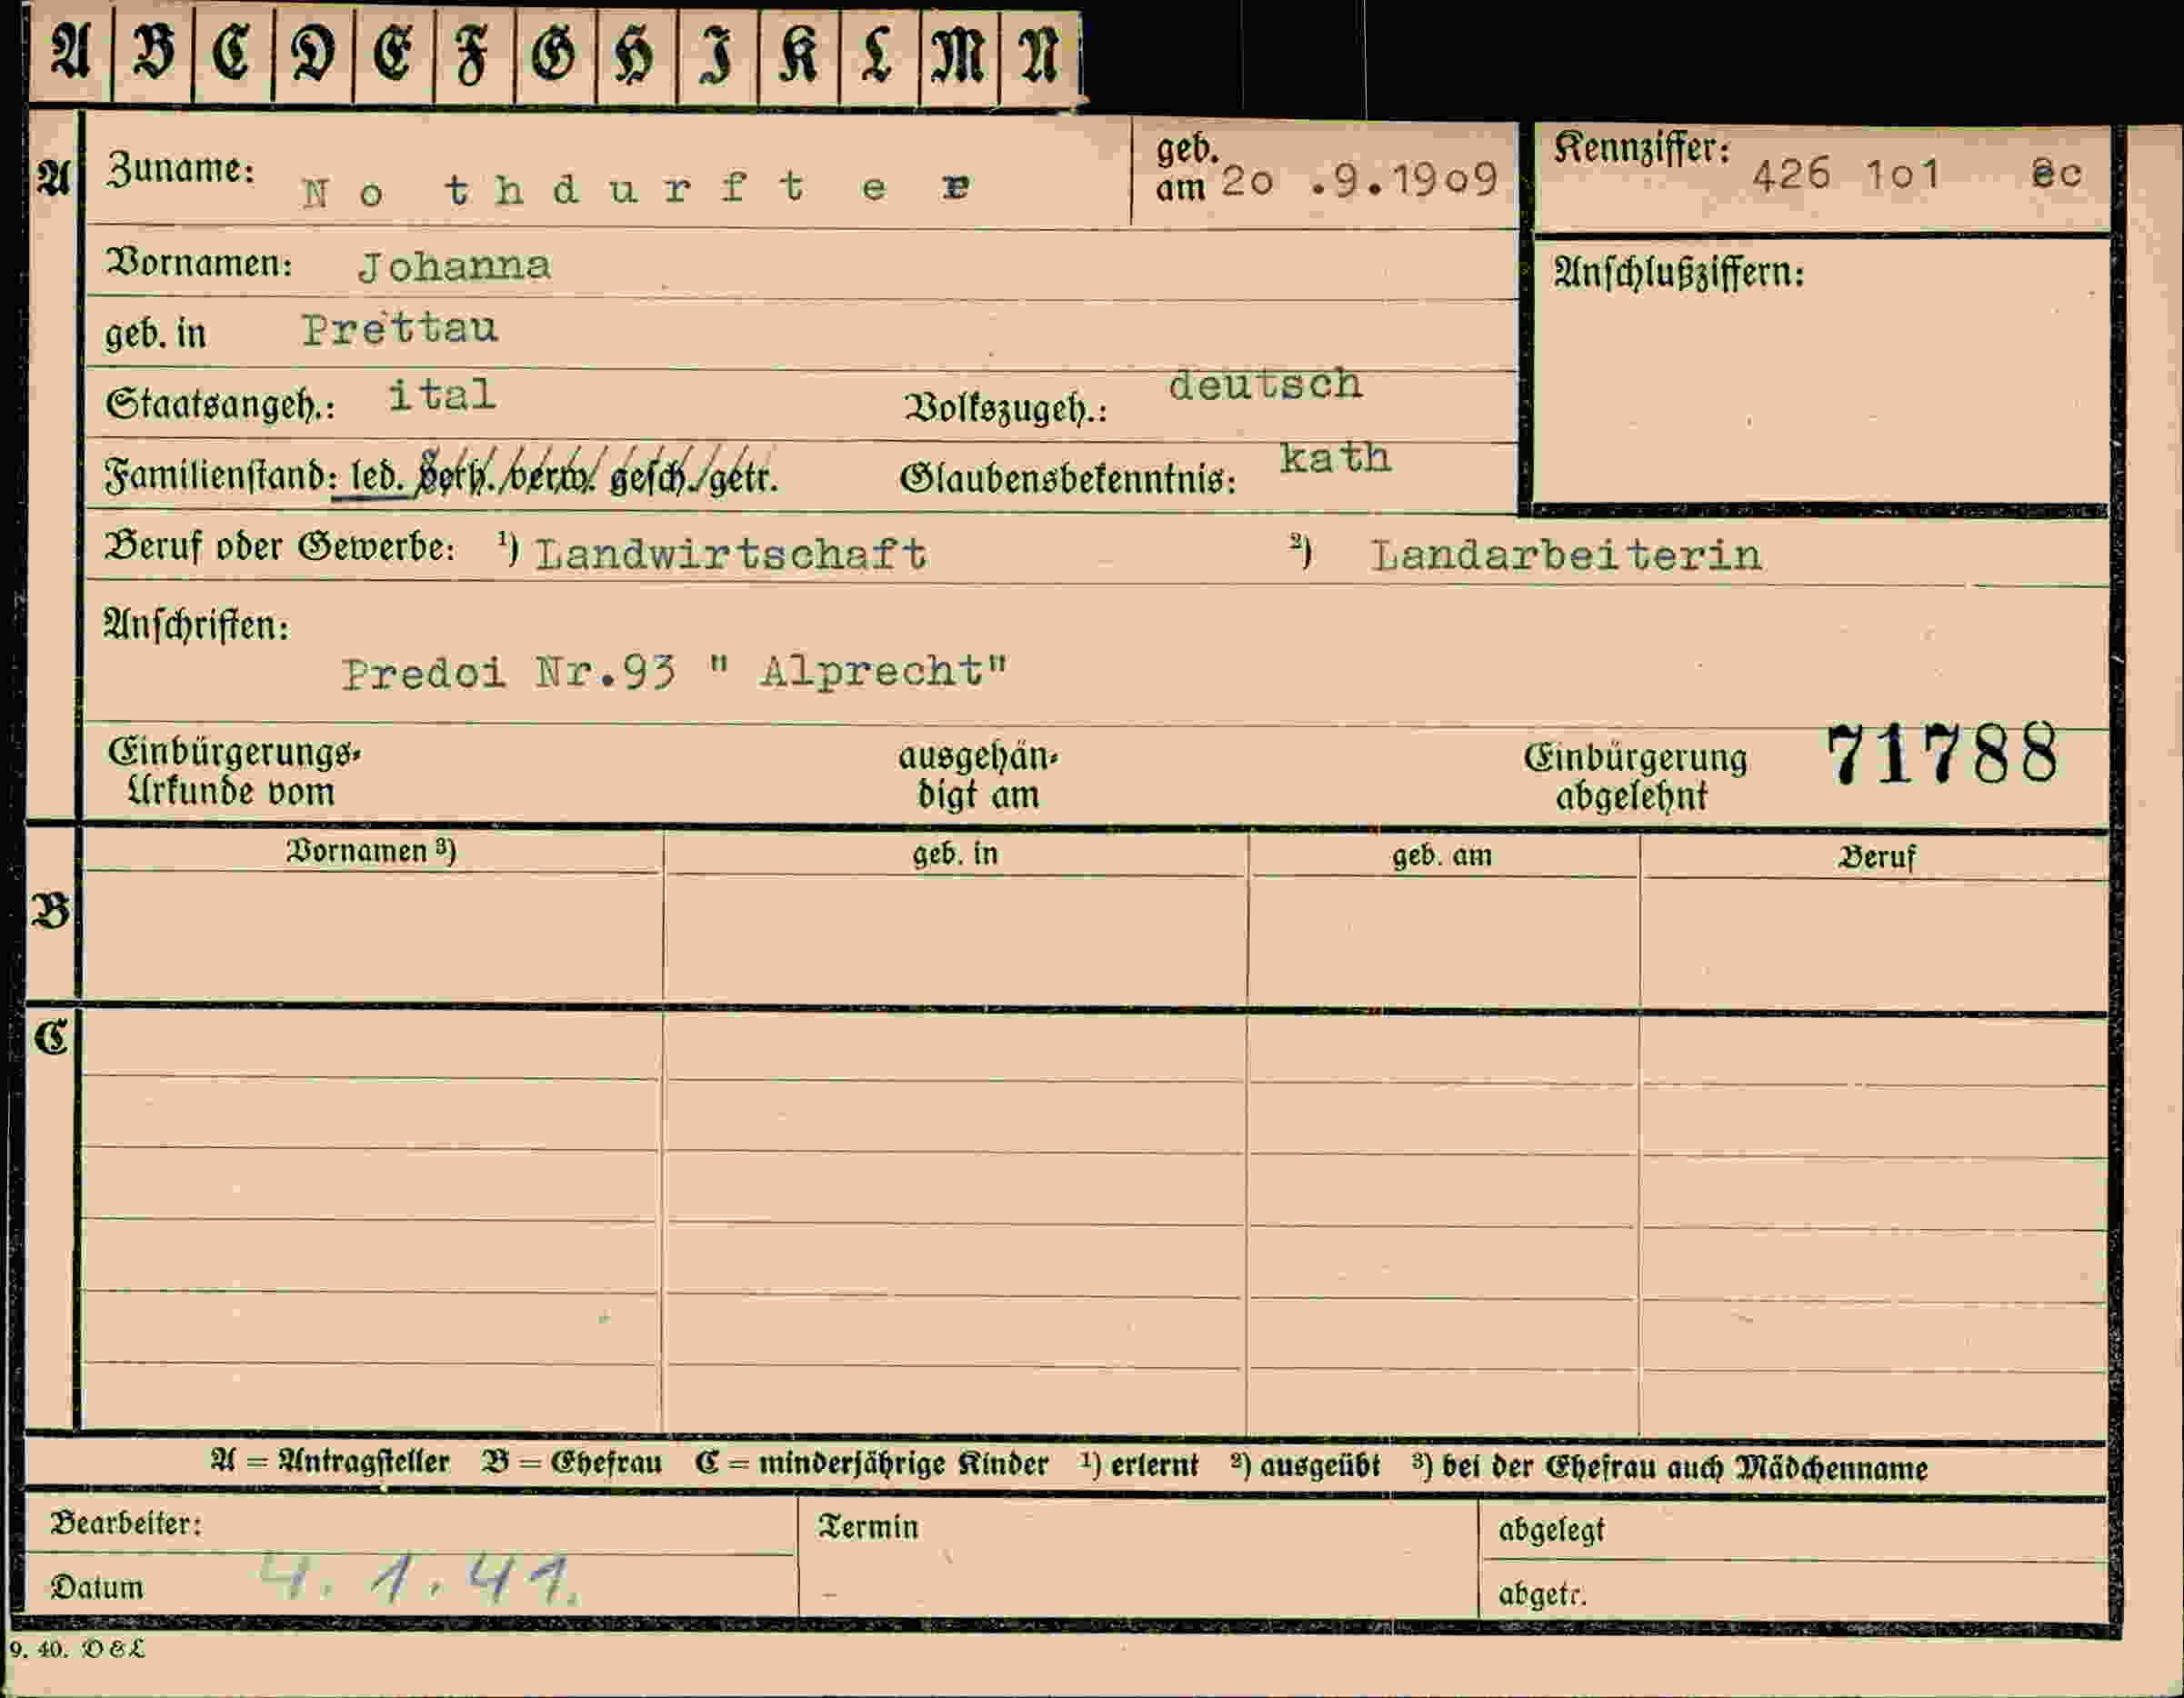 A B C D E F G H I K L M N
A Zuname: Nothdurfter geb. am 20 .9.1909 Kennziffer: 426 101 8c
Vornamen: Johanna Anschlußziffern:
geb. in Prettau
Staatsangeh.: ital Volkszugeh.: deutsch
Familienstand: led. verh./verw./ gesch./getr. Glaubensbekenntnis: kath
Beruf oder Gewerbe: ¹) Landwirtschaft ²) Landarbeiterin
Anschriften:
Predoi Nr.93 " Alprecht"
Einbürgerungs- Urkunde vom ausgehän- digt am Einbürgerung abgelehnt 71788
Vornamen ³) geb. in geb. am Beruf
B
C
A = Antragsteller B = Ehefrau C = minderjährige Kinder ¹) erlernt ²) ausgeübt ³) bei der Ehefrau auch Mädchenname
Bearbeiter: Termin abgelegt
Datum 4. 1. 41. abgetr.
9. 40. D & L